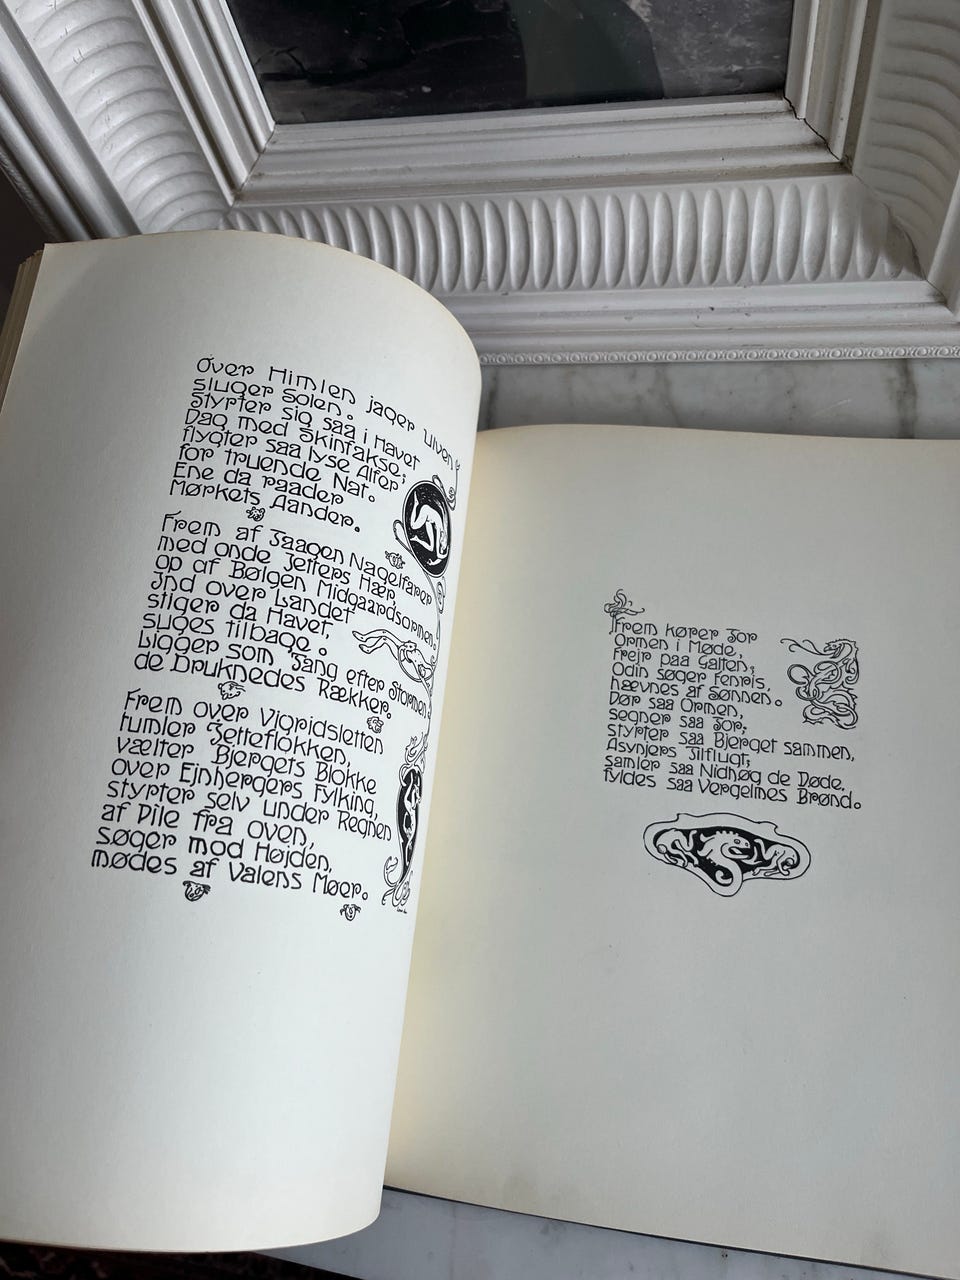 Over Himlen jager Ulven,
sluger Solen.
Styrter sig saa i Havet
Dag med Skinfakse;
flygter saa lyse Alfer
for truende Nat.
Ene da raader
Mørkets Aander.
Frem af Taagen Nagelfarer
med onde Jetters Hær,
op af Bølgen Midgaardsormen.
Ind over Landet
stiger da Havet,
suges tilbage.
Ligger som Tang efter Stormen
de Druknedes Rækker.
Frem over Vigridsletten
tumler Jetteflokken,
vælter Bjergets Blokke
over Ejnhergers Fylking,
styrter selv under Regnen
af Pile fra oven,
søger mod Højden,
mødes af Valens Møer.
Frem kører Tor
Ormen i Møde,
Frejr paa Galten;
Odin søger Fenris,
hævnes af Sønnen.
Dør saa Ormen,
segner saa Tor;
styrter saa Bjerget sammen,
Asynjers Tilflugt;
samler saa Nidhøg de Døde,
fyldes saa Vergelmes Brønd.